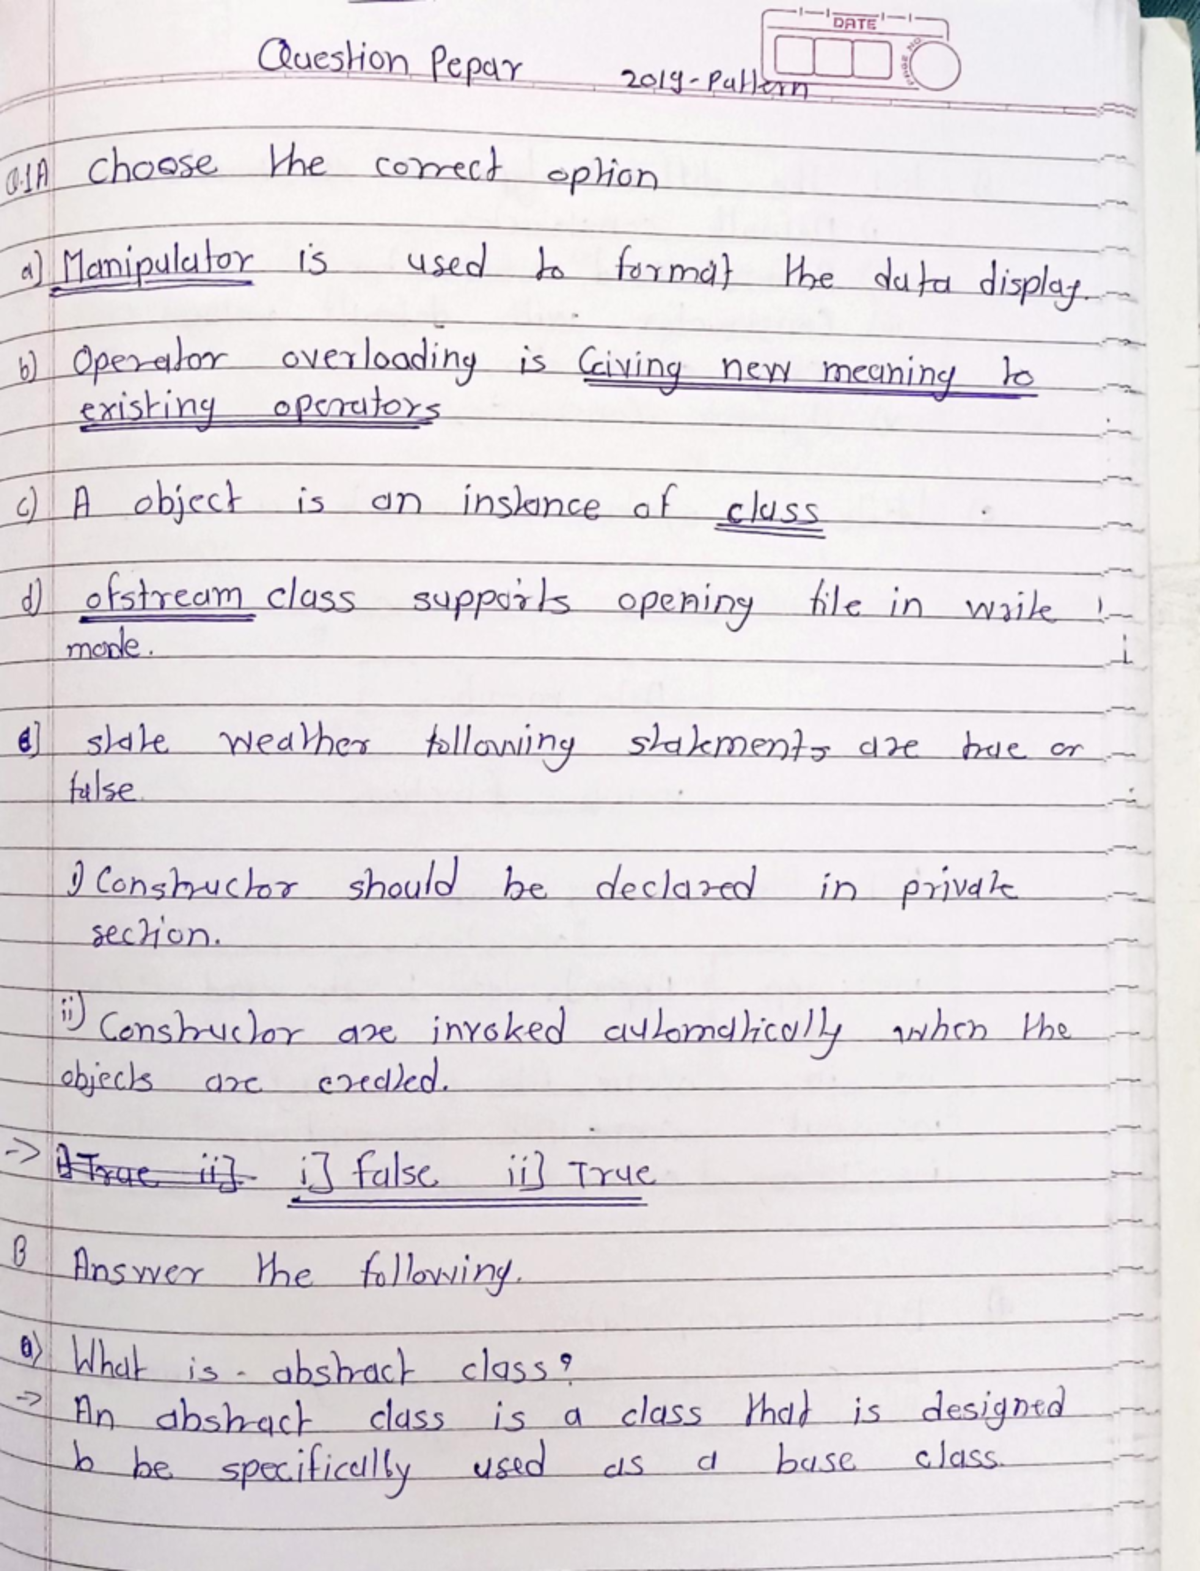 DATE
PAGE NO
Question Pepar 2019-Pattern
Q.1A choose the correct option
a) Manipulator is used to format the data display.
b) Operator overloading is Giving new meaning to
existing operators
c) A object is an instance of class
d) ofstream class supports opening file in write
mode.
e] state weather following statements are true or
false.
i) Constructor should be declared in private
section.
ii) Constructor are invoked automatically when the
objects are created.
-> i] True ii] i] false ii] True
B Answer the following.
a) What is abstract class?
-> An abstract class is a class that is designed
to be specifically used as a base class.